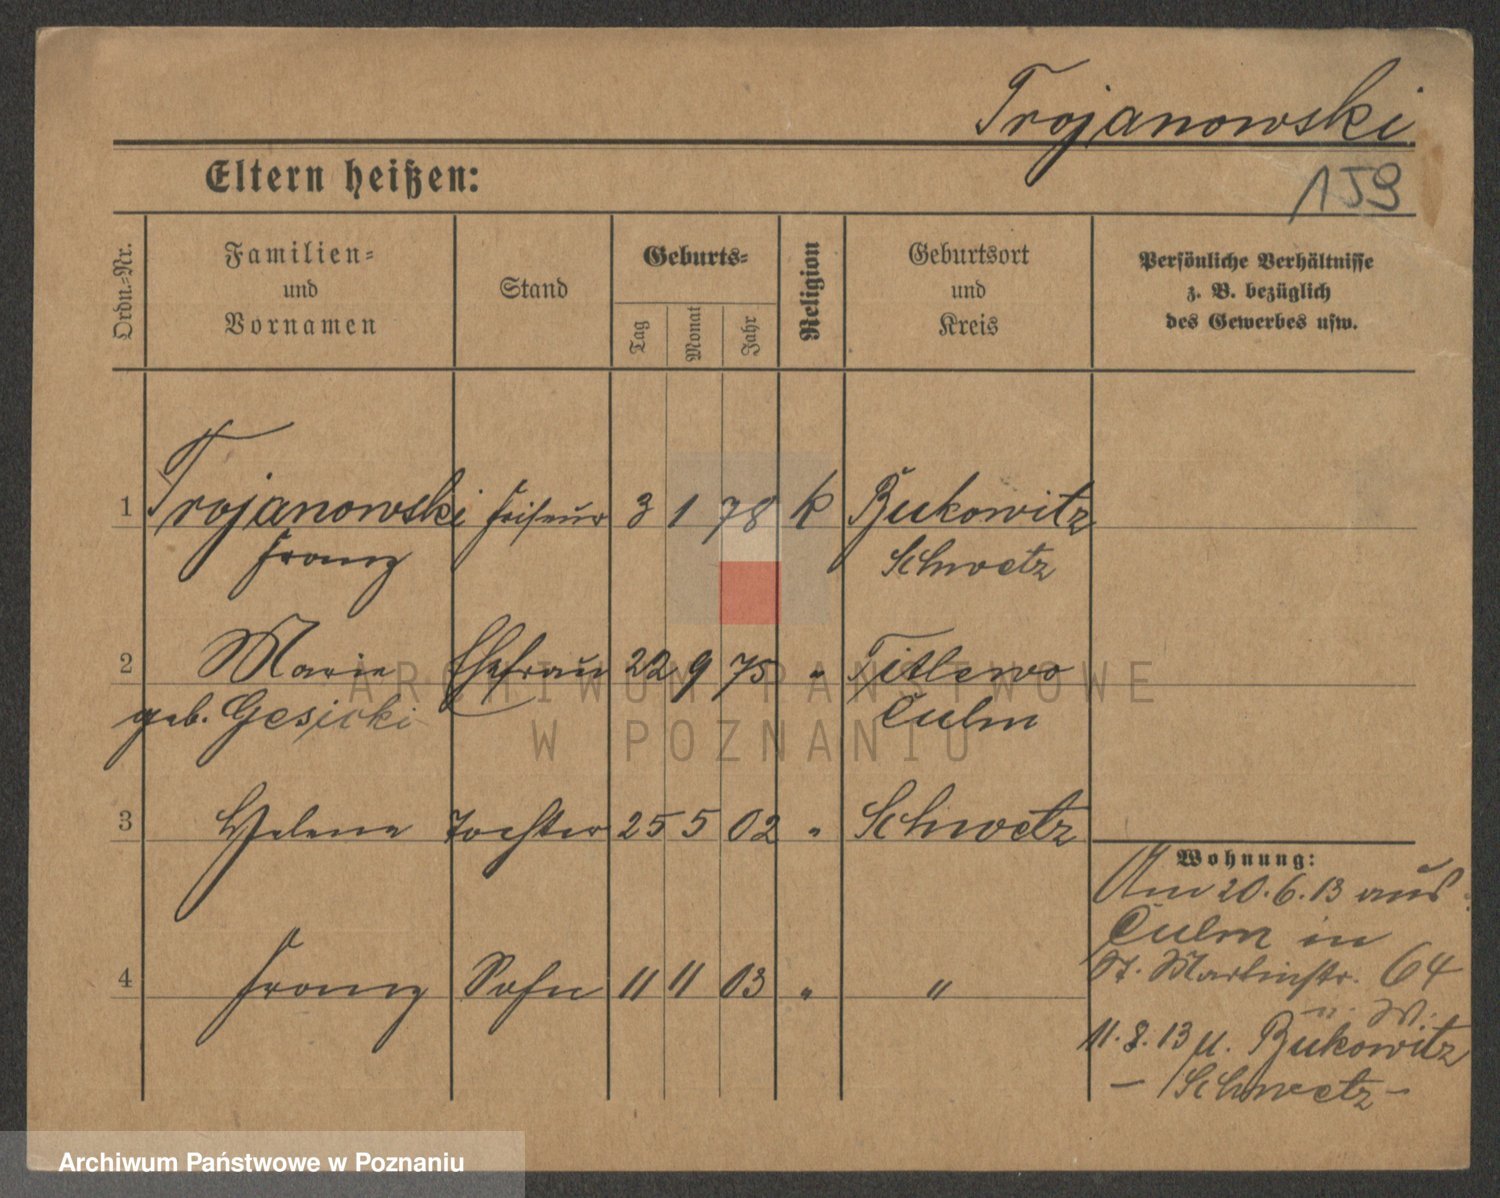 Trojanowski
159
Eltern heißen:
Ordn.-Nr.
Familien- und Vornamen
Stand
Geburts-
Tag
Monat
Jahr
Religion
Geburtsort und Kreis
Persönliche Verhältnisse
z. B. bezüglich
des Gewerbes usw.
1 Trojanowski Friseur 3 1 78 k Bukowitz
Franz Schwetz
2 Marie Ehefrau 22 9 75 " Titlewo
geb. Gesicki Culm
3 Helene Tochter 25 5 02 " Schwetz
4 Franz Sohn 11 11 03 " "
Wohnung:
Am 20.6.13 aus
Culm in
St. Martinstr. 64
11.8.13 n. Bukowitz
- Schwetz -
ARCHIWUM PAŃSTWOWE
W POZNANIU
Archiwum Państwowe w Poznaniu